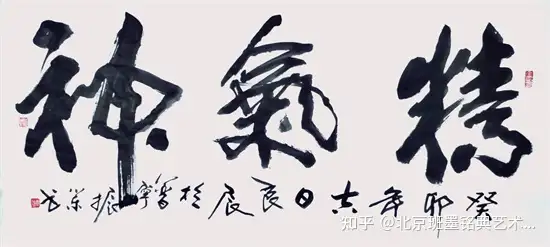 精氣神
癸卯年吉日良辰於 振
知乎 @北京班墨铭典艺术...